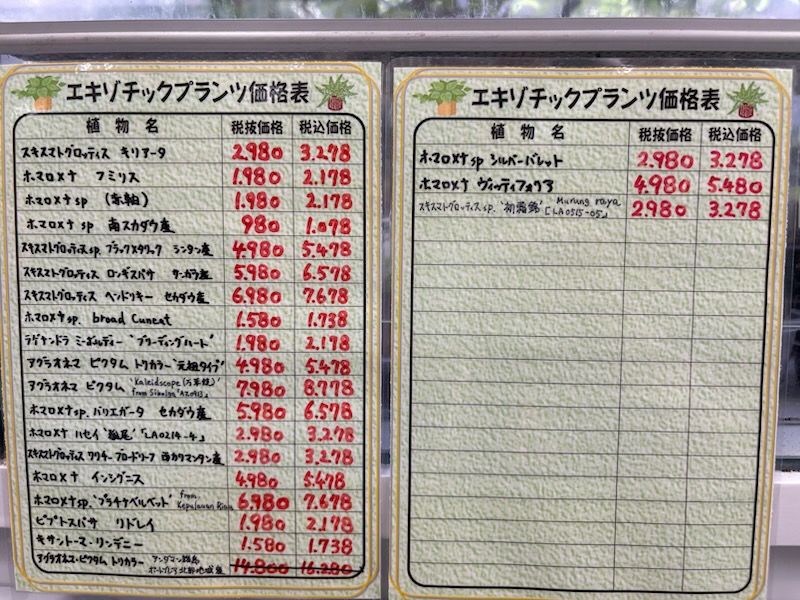 エキゾチックプランツ価格表
植物名 税抜価格 税込価格
スキスマトグロッティス キリアータ 2.980 3.278
ホマロメナ フミリス 1.980 2.178
ホマロメナsp (赤軸) 1.980 2.178
ホマロメナsp 南スカダウ産 980 1.078
スキスマトグロッティスsp. ブラックメタリック シンタン産 4.980 5.478
スキスマトグロッティス ロンギスパサ サンガウ産 5.980 6.578
スキスマトグロッティス ヘンドリキー セカダウ産 6.980 7.678
ホマロメナsp. broad Cuneat 1.580 1.738
ラゲナンドラ ミーボルディー "ブリーディングハート" 1.980 2.178
アグラオネマ ピクタム トリカラー "元祖タイプ" 4.980 5.478
アグラオネマ ピクタム "Kaleidscope(万華鏡)" from Sibolga「AZ0913」 7.980 8.778
ホマロメナsp. バリエガータ セカダウ産 5.980 6.578
ホマロメナ ハセイ 「LA0214-4」 2.980 3.278
スキスマトグロッティス ワリチー ブロードリーフ 西カリマンタン産 2.980 3.278
ホマロメナ インシグニス 4.980 5.478
ホマロメナsp. "プラチナベルベット" from Kepulauan Riau 6.980 7.678
ピプトスパサ リドレイ 1.980 2.178
キサントーマ・リンデニー 1.580 1.738
アグラオネマ・ピクタム トリカラー アンダマン諸島 ポートブレア北部地域産 14.800 16.280
エキゾチックプランツ価格表
植物名 税抜価格 税込価格
ホマロメナsp シルバーバレット 2.980 3.278
ホマロメナ ヴィッティフォリア 4.980 5.480
スキスマトグロッティスsp. "初霜錦" Murung raya「LA0515-05」 2.980 3.278